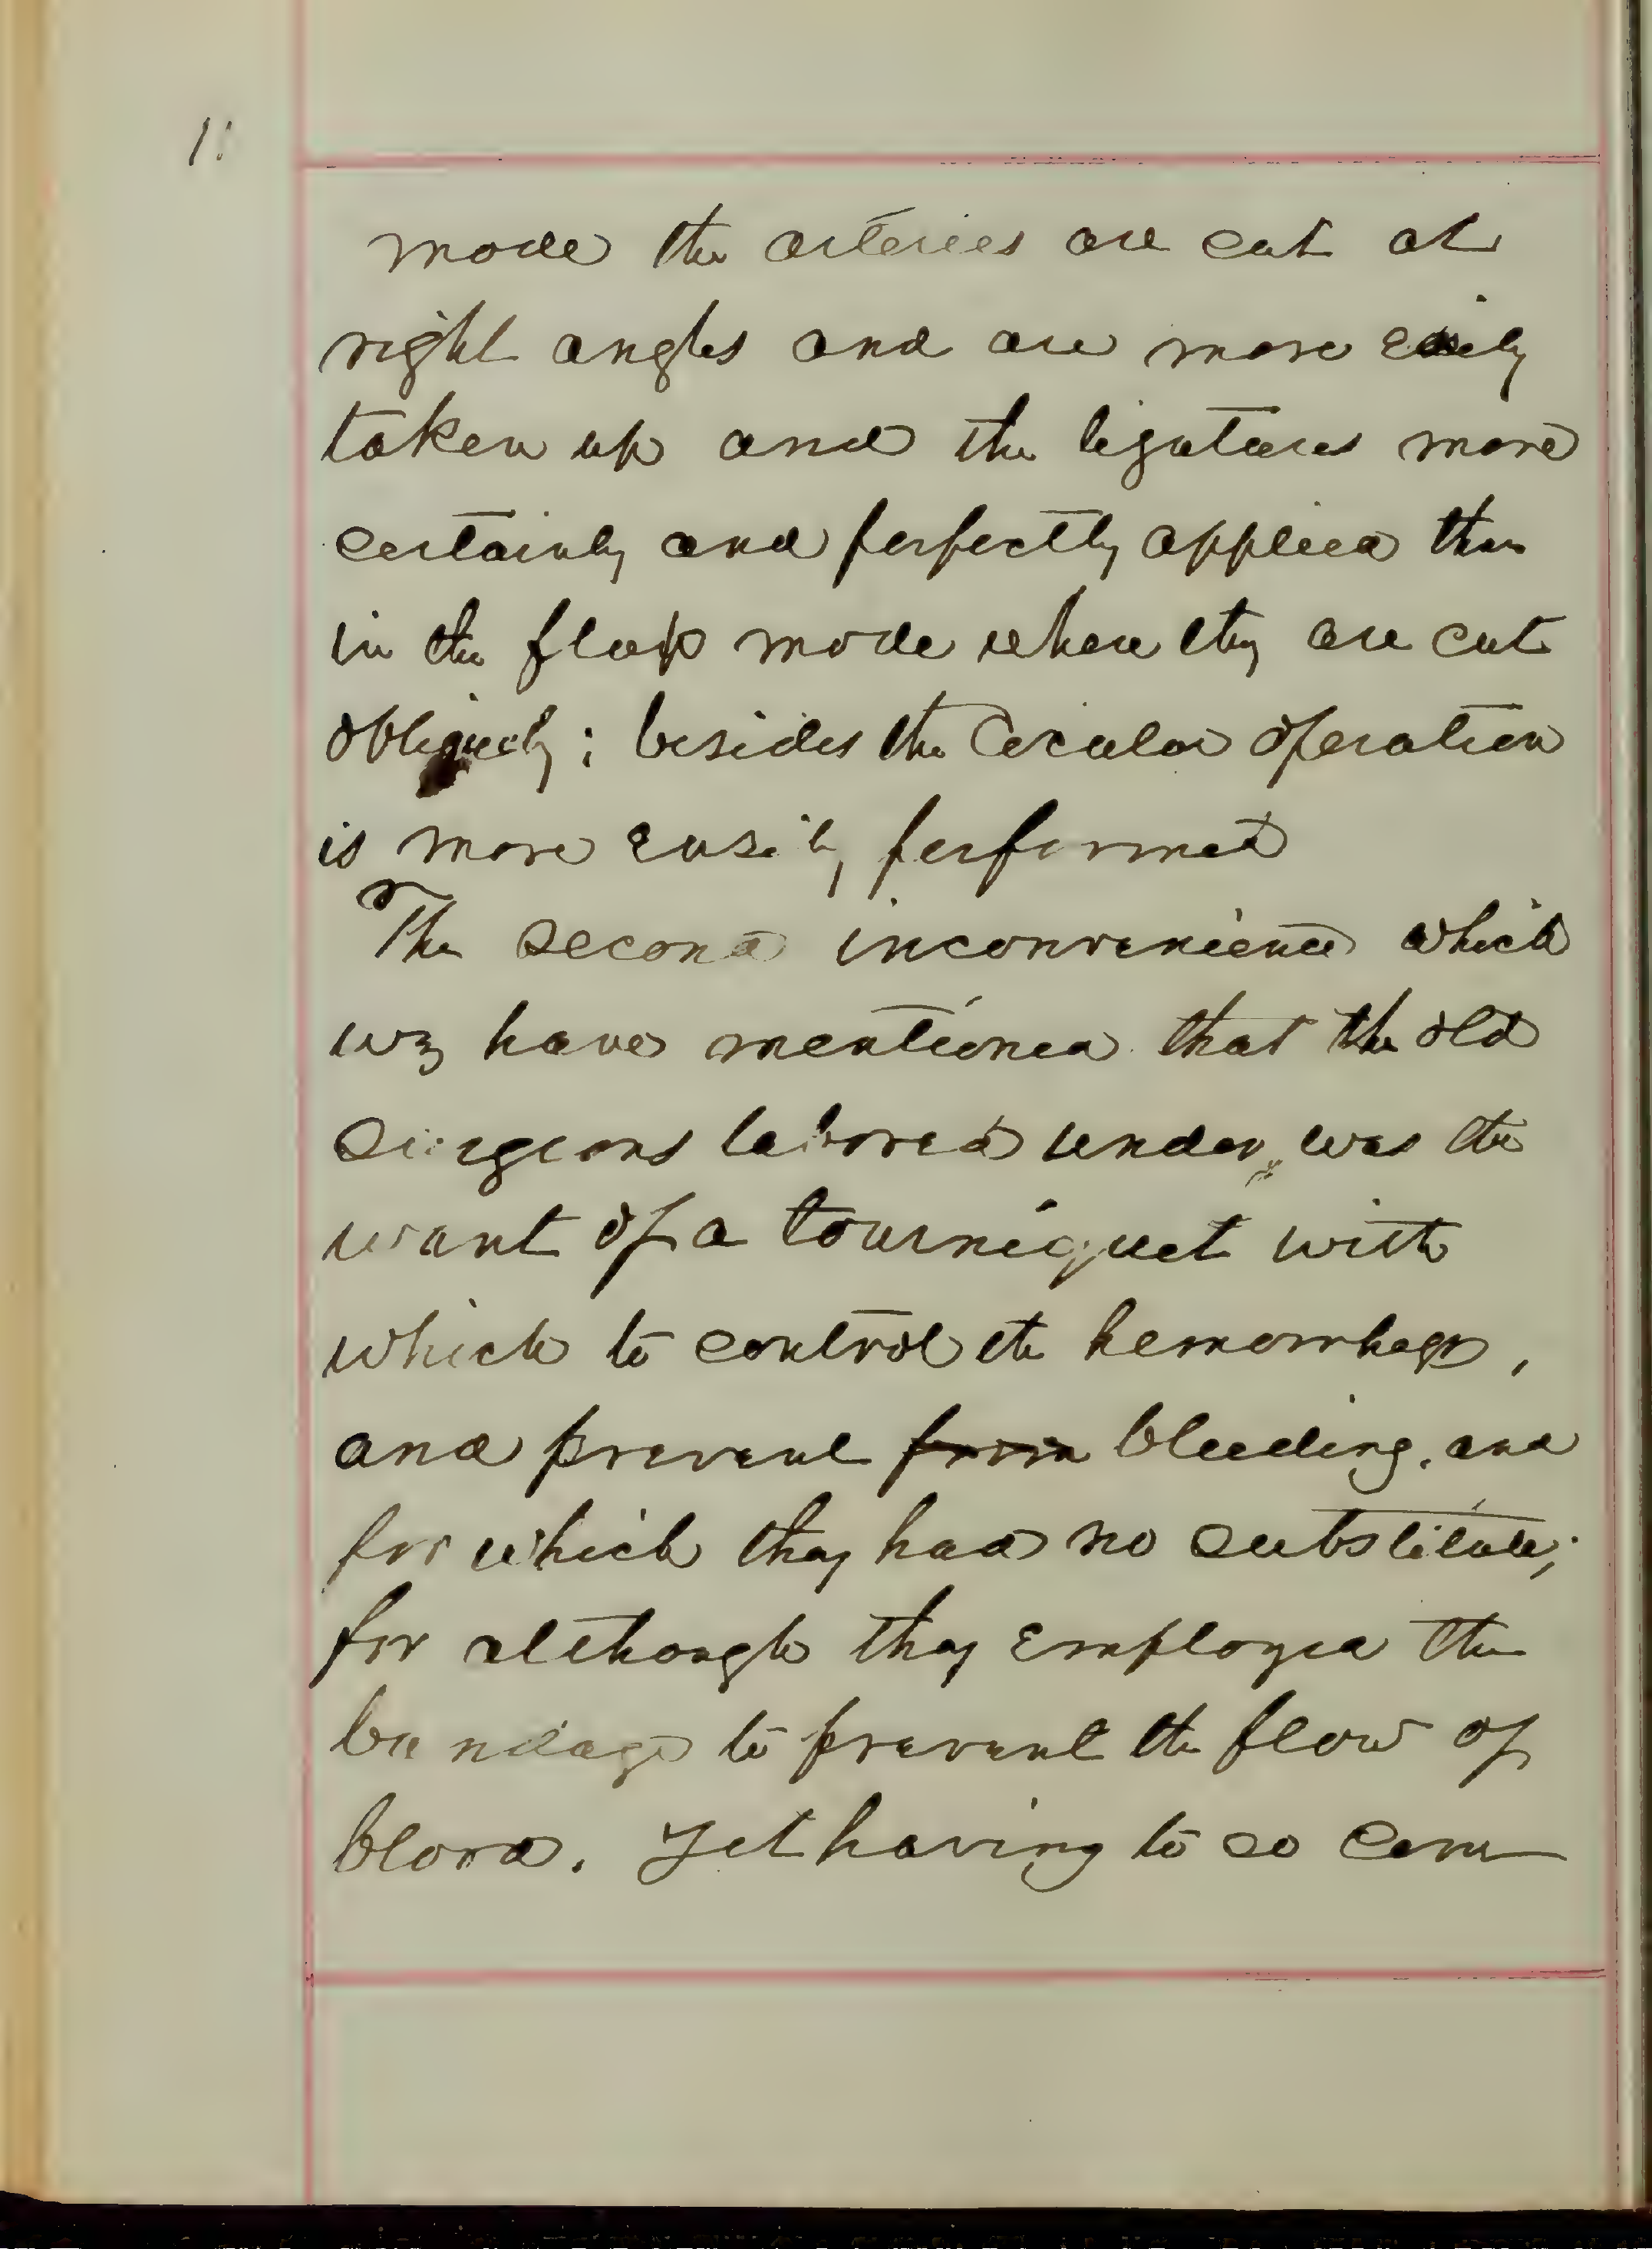 mode the arteries are cut at
right angles and are more easily
taken up and the ligatures more
certainly and perfectly applied than
in the flap mode where they are cut
obliquely; besides the Circular operation
is more easily performed
The second inconvenience which
we have mentioned that the old
surgeons labored under, was the
want of a tourniquet with
which to control the hemorrhage,
and prevent from bleeding, and
for which they had no substitute;
for although they employed the
bandage to prevent the flow of
blood. Yet having to so